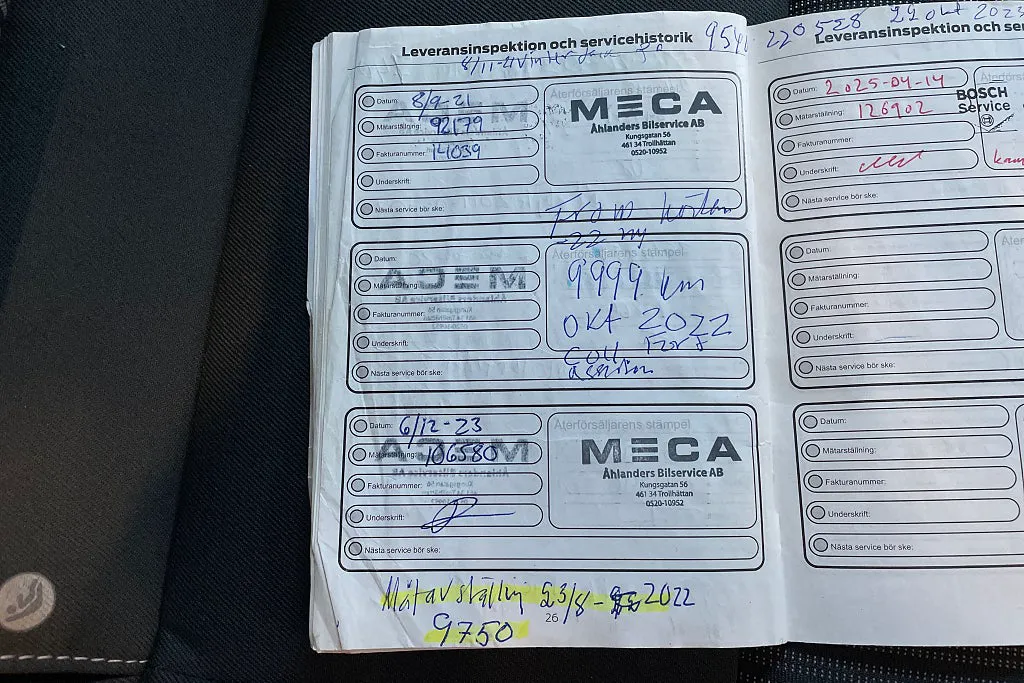 Leveransinspektion och servicehistorik
8/11-21 Vinter
Datum: 8/9-21
Mätarställning: 92179
Fakturanummer: 14039
Underskrift:
Nästa service bör ske:
Återförsäljarens stämpel
MECA
Åhlanders Bilservice AB
Kungsgatan 56
461 34 Trollhättan
0520-10952
From hösten
-22 ny
Datum:
Mätarställning:
Fakturanummer:
Underskrift:
Nästa service bör ske:
Återförsäljarens stämpel
9999 km
OKT 2022
Datum: 6/12-23
Mätarställning: 106580
Fakturanummer:
Underskrift:
Nästa service bör ske:
Återförsäljarens stämpel
MECA
Åhlanders Bilservice AB
Kungsgatan 56
461 34 Trollhättan
0520-10952
Mätavställn 23/8- 2022
9750
26
220528 22 okt 2023
Leveransinspektion och
Datum: 2025-04-14
Mätarställning: 126902
Fakturanummer:
Underskrift:
Nästa service bör ske:
BOSCH
Service
Datum:
Mätarställning:
Fakturanummer:
Underskrift:
Nästa service bör ske:
Datum:
Mätarställning:
Fakturanummer:
Underskrift:
Nästa service bör ske: